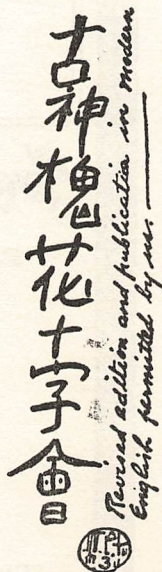 古神槐花十字會
Revised edition and publication in modern
English permitted by us.